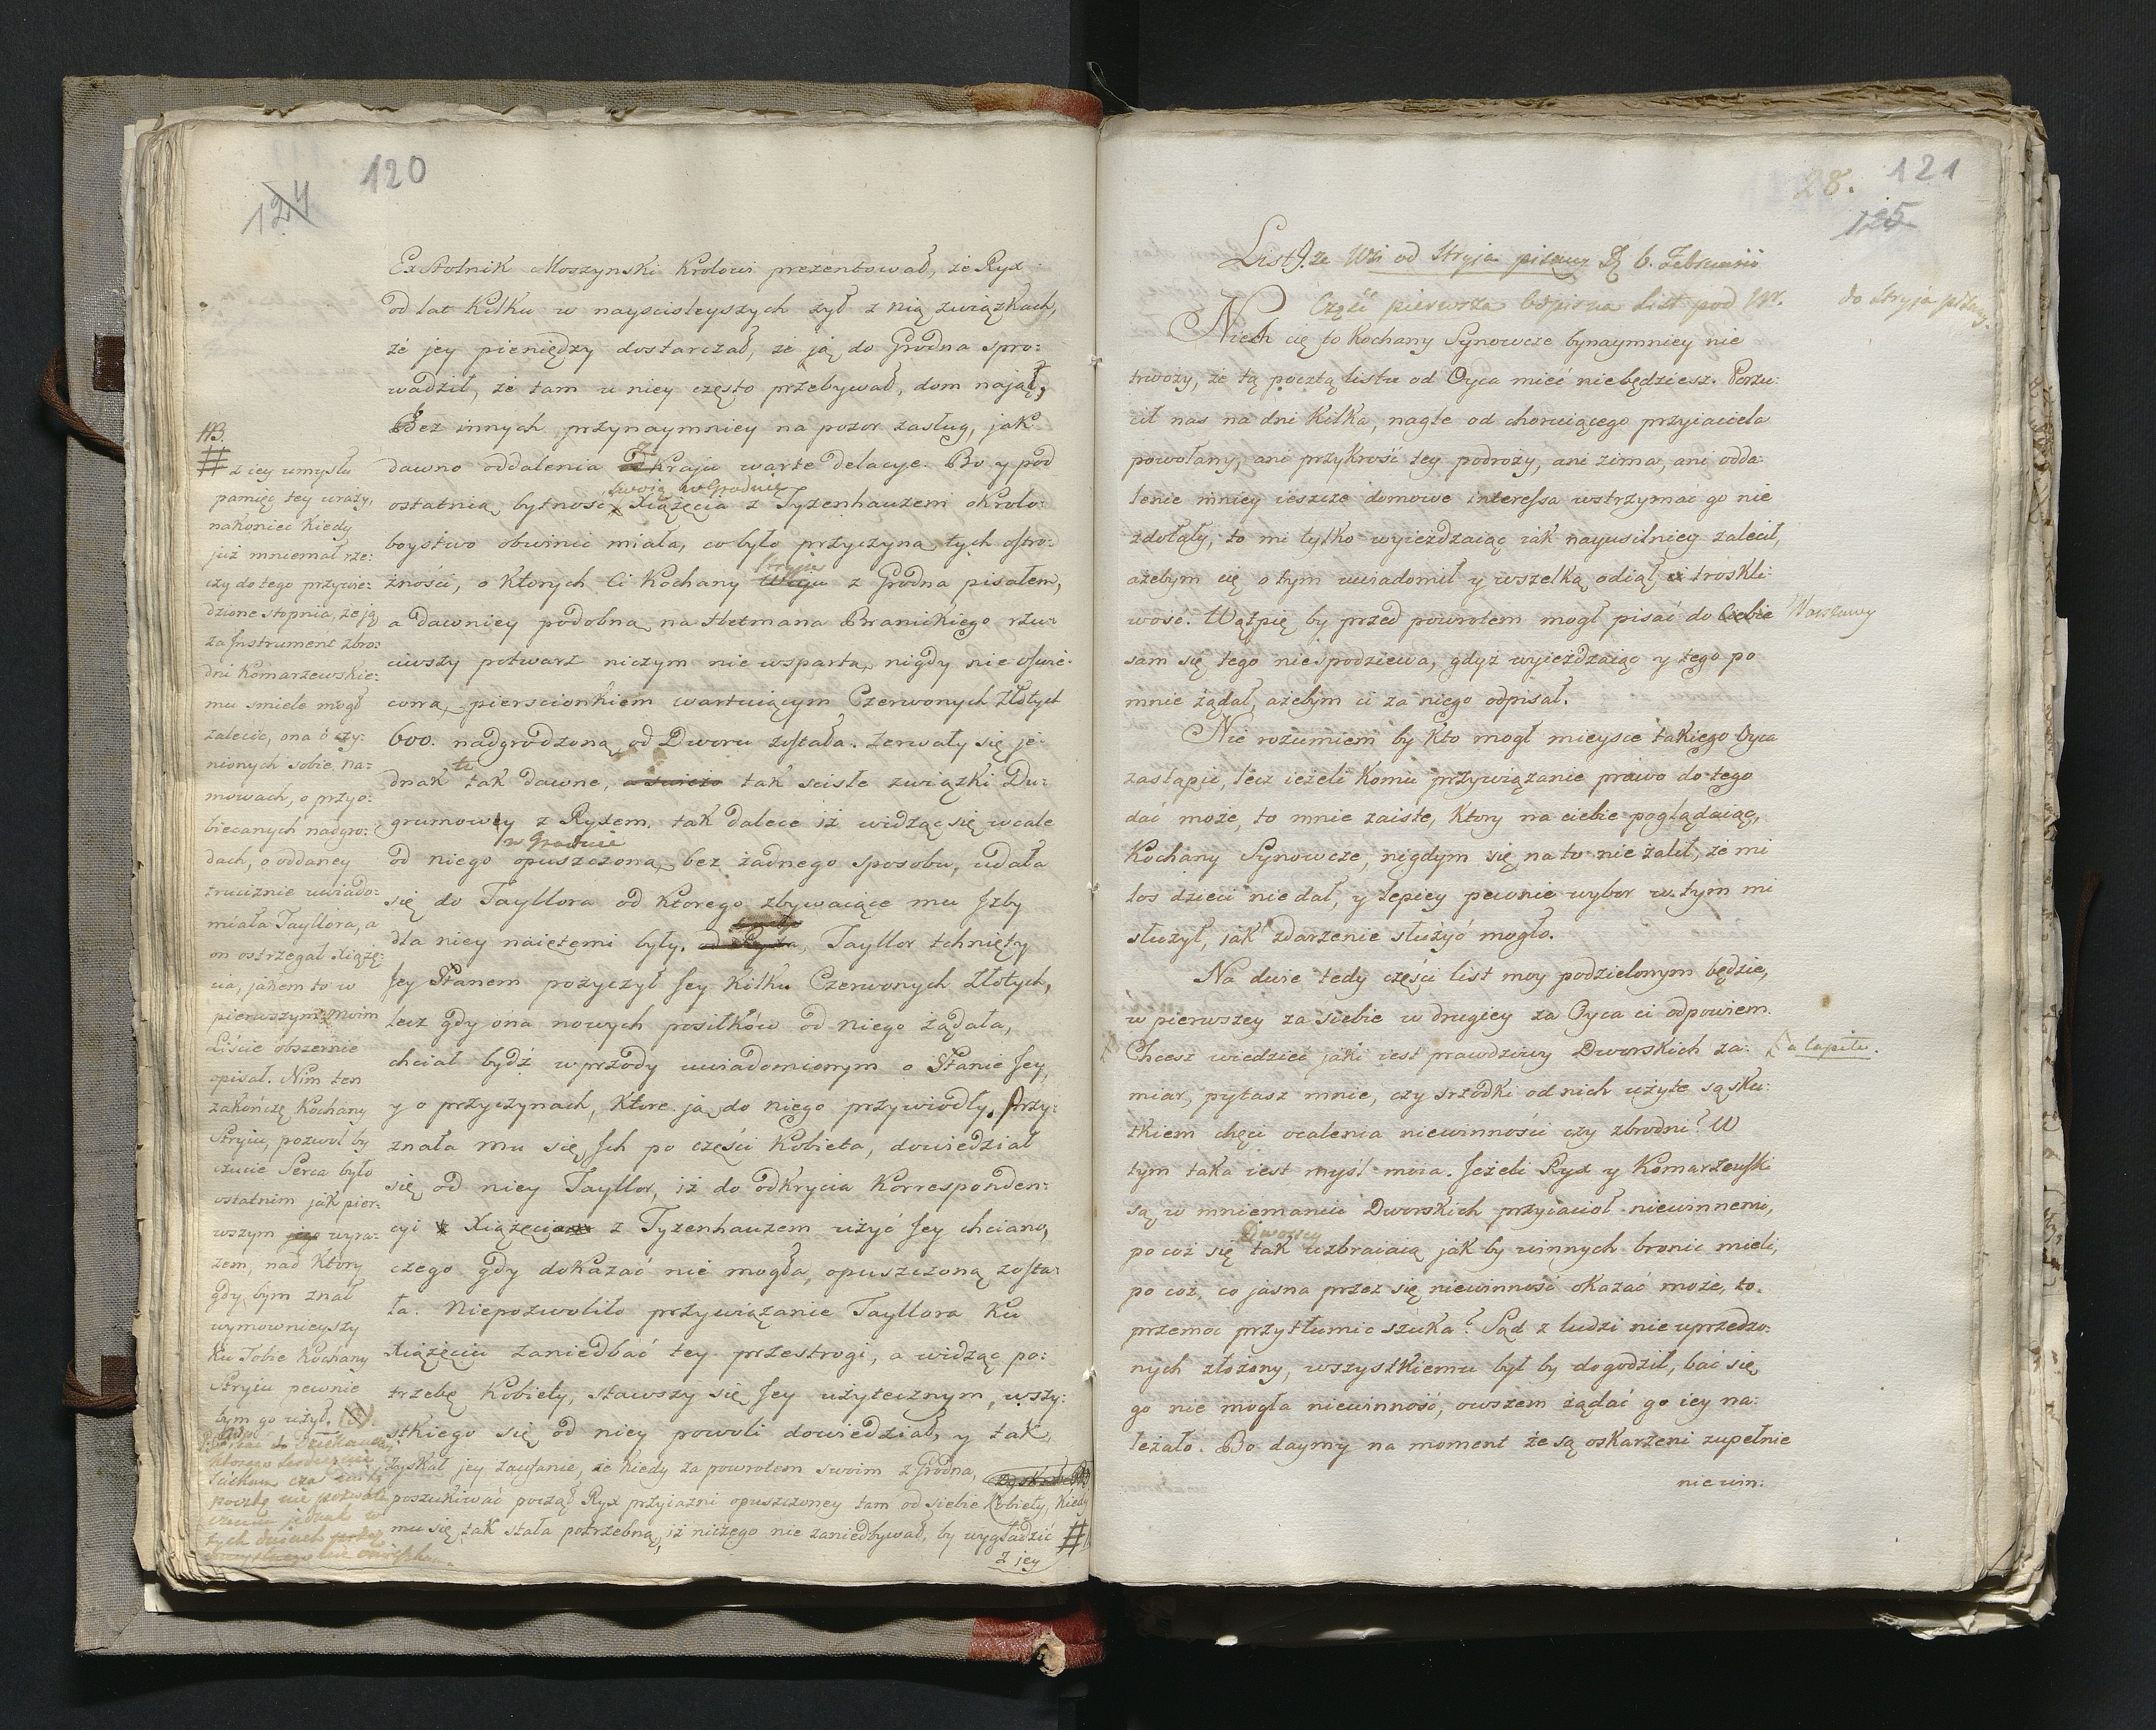 120
124
Ex Stolnik Moszynski Krolowi prezentował, że Ryx
od lat Kilku w nayscisleyszych żył z nią związkach,
że jey pieniędzy dostarczał, że ją do Grodna spro:
wadził, że tam u niey często przebywał, dom najął,
Bez innych przynaymniey na pozor zasług, jak
dawno oddalenia Z Kraju warte delacye. Bo y pod
swoią w Grodnie
ostatnią bytność Xiążęcia z Tyzenhauzem o Krolo:
boystwo obwinić miała, co było przyczyną tych ostro:
żności, o Ktorych Ci Kochany Stryiu z Grodna pisałem,
a dawniey podobną na Hetmana Branickiego rzu:
ciwszy potwarz niczym nie wspartą, nigdy nie oświe:
coną, pierscionkiem wartuiącym Czerwonych Złotych
600. nadgrodzoną od Dworu została. Zerwały się je:
dnak te tak dawne, tak scisłe związki Du:
grumowey z Ryxem. tak dalece iż widząc się wcale
w Grodnie
od niego opuszczoną, bez żadnego sposobu, udała
się do Tayllora od Ktorego zbywaiące mu Jzby
dla niey naiętemi były. Tayllor tchnięty
Jey Stanem pożyczył Jey Kilku Czerwonych Złotych,
lecz gdy ona nowych posiłków od niego żądała,
chciał bydź wprzody uwiadomionym o Stanie Jey,
y o przyczynach, Ktore ją do niego przywiodły. Przy:
znała mu się Jch po części Kobieta, dowiedział
się od niey Tayllor, iż do odkrycia Korresponden:
cyi Xiążęcia z Tyzenhauzem użyć Jey chciano,
czego gdy dokazać nie mogła, opuszczoną zosta:
ła. Niepozwoliło przywiązanie Tayllora Ku
Xiążęciu zaniedbać tey przestrogi, a widząc po:
trzebę Kobiety, stawszy się Jey użytecznym, wszy:
stkiego się od niey powoli dowiedział, y tak
zyskał jey zaufanie, że kiedy za powrotem swoim z Grodna,
poszukiwać począł Ryx przyiazni opuszczoney tam od siebie Kobiety, Kiedy
mu się tak stała potrzebną, iż niczego nie zaniedbywał, by wygładzić #
z jey
NB.
# z iey umysłu
pamięć tey urazy,
nakoniec Kiedy
już mniemał rze:
czy do tego przywie:
dzione stopnia, że ją
za Jnstrument zbro:
dni Komarzewskie:
mu smiele mogł
zalecić, ona o czy:
nionych sobie na:
mowach, o przyo:
biecanych nadgro:
dach, o oddaney
truciznie uwiado:
miała Tayllora, a
on ostrzegał Xiążę:
cia, jakem to w
pierwszym moim
Liście obszernie
opisał. Nim ten
zakończę Kochany
Stryiu, pozwol by
czucie Serca było
ostatnim jak pier:
wszym wyra:
zem, nad Ktory
gdy bym znał
wymownieyszy
Ku Tobie Kochany
Stryiu pewnie
bym go użył.
28. 121
125
List 9. ze Wsi od Stryja pisany D. 6. Februarii
Część pierwsza Odpis na List pod Nr. do Stryja pisany.
Niech cię to Kochany Synowcze bynaymniey nie
trwoży, że tą pocztą listu od Oyca mieć niebędziesz. Porzu:
cił nas na dni Kilka, nagle od choruiącego przyiaciela
powołany, ani przykrość tey podroży, ani zima, ani odda:
lenie mniey ieszcze domowe interessa wstrzymać go nie
zdołały, to mi tylko wyieżdzaiąc iak nayusilniey zalecił,
ażebym cię o tym uwiadomił y wszelką odiął ci troskli:
wość. Wątpię by przed powrotem mogł pisać do Ciebie Warszawy
sam się tego niespodziewa, gdyż wyieżdzaiąc y tego po
mnie żądał, ażebym ci za niego odpisał.
Nie rozumiem by Kto mogł mieysce takiego Oyca
zastąpić, lecz ieżeli Komu przywiązanie prawo do tego
dać może, to mnie zaiste, Ktory na ciebie poglądaiąc,
Kochany Synowcze, nigdym się na to nie żalił, że mi
los dzieci nie dał, y lepiey pewnie wybor w tym mi
służył, jak zdarzenie służyć mogło.
Na dwie tedy części list moy podzielonym będzie,
w pierwszey za siebie w drugiey za Oyca ci odpowiem.
Chcesz wiedzieć jaki iest prawdziwy Dworskich za: a capite.
miar, pytasz mnie, czy srzodki od nich użyte są sku:
tkiem chęci ocalenia niewinności czy zbrodni? W
tym taka iest myśl moia. Jeżeli Ryx y Komarzewski
są w mniemaniu Dworskich przyiacioł niewinnemi,
Dworscy
po coż się tak uzbraiaią jak by winnych bronić mieli,
po coż, co jasna przez się niewinność okazać może, to
przemoc przytłumić szuka? Sąd z ludzi nie uprzedzo:
nych złożony, wszystkiemu był by dogodził, bać się
go nie mogła niewinność, owszem żądać go iey na:
leżało. Bo daymy na moment że są oskarżeni zupełnie
niewin: